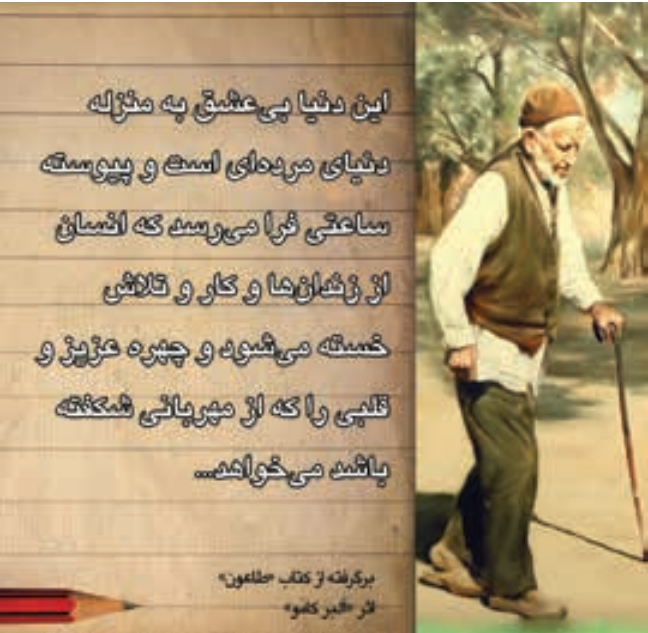 این دنیا بی‌عشق به منزله
دنیای مرده‌ای است و پیوسته
ساعتی فرا می‌رسد که انسان
از زندان‌ها و کار و تلاش
خسته می‌شود و چهره عزیز و
قلبی را که از مهربانی شکفته
باشد می‌خواهد...
برگرفته از کتاب «طاعون»
اثر «آلبر کامو»